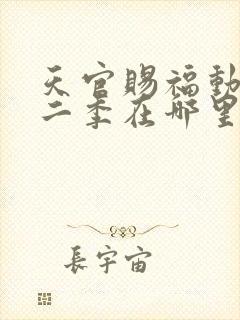 天官賜福動
二季在哪里
長宇宙